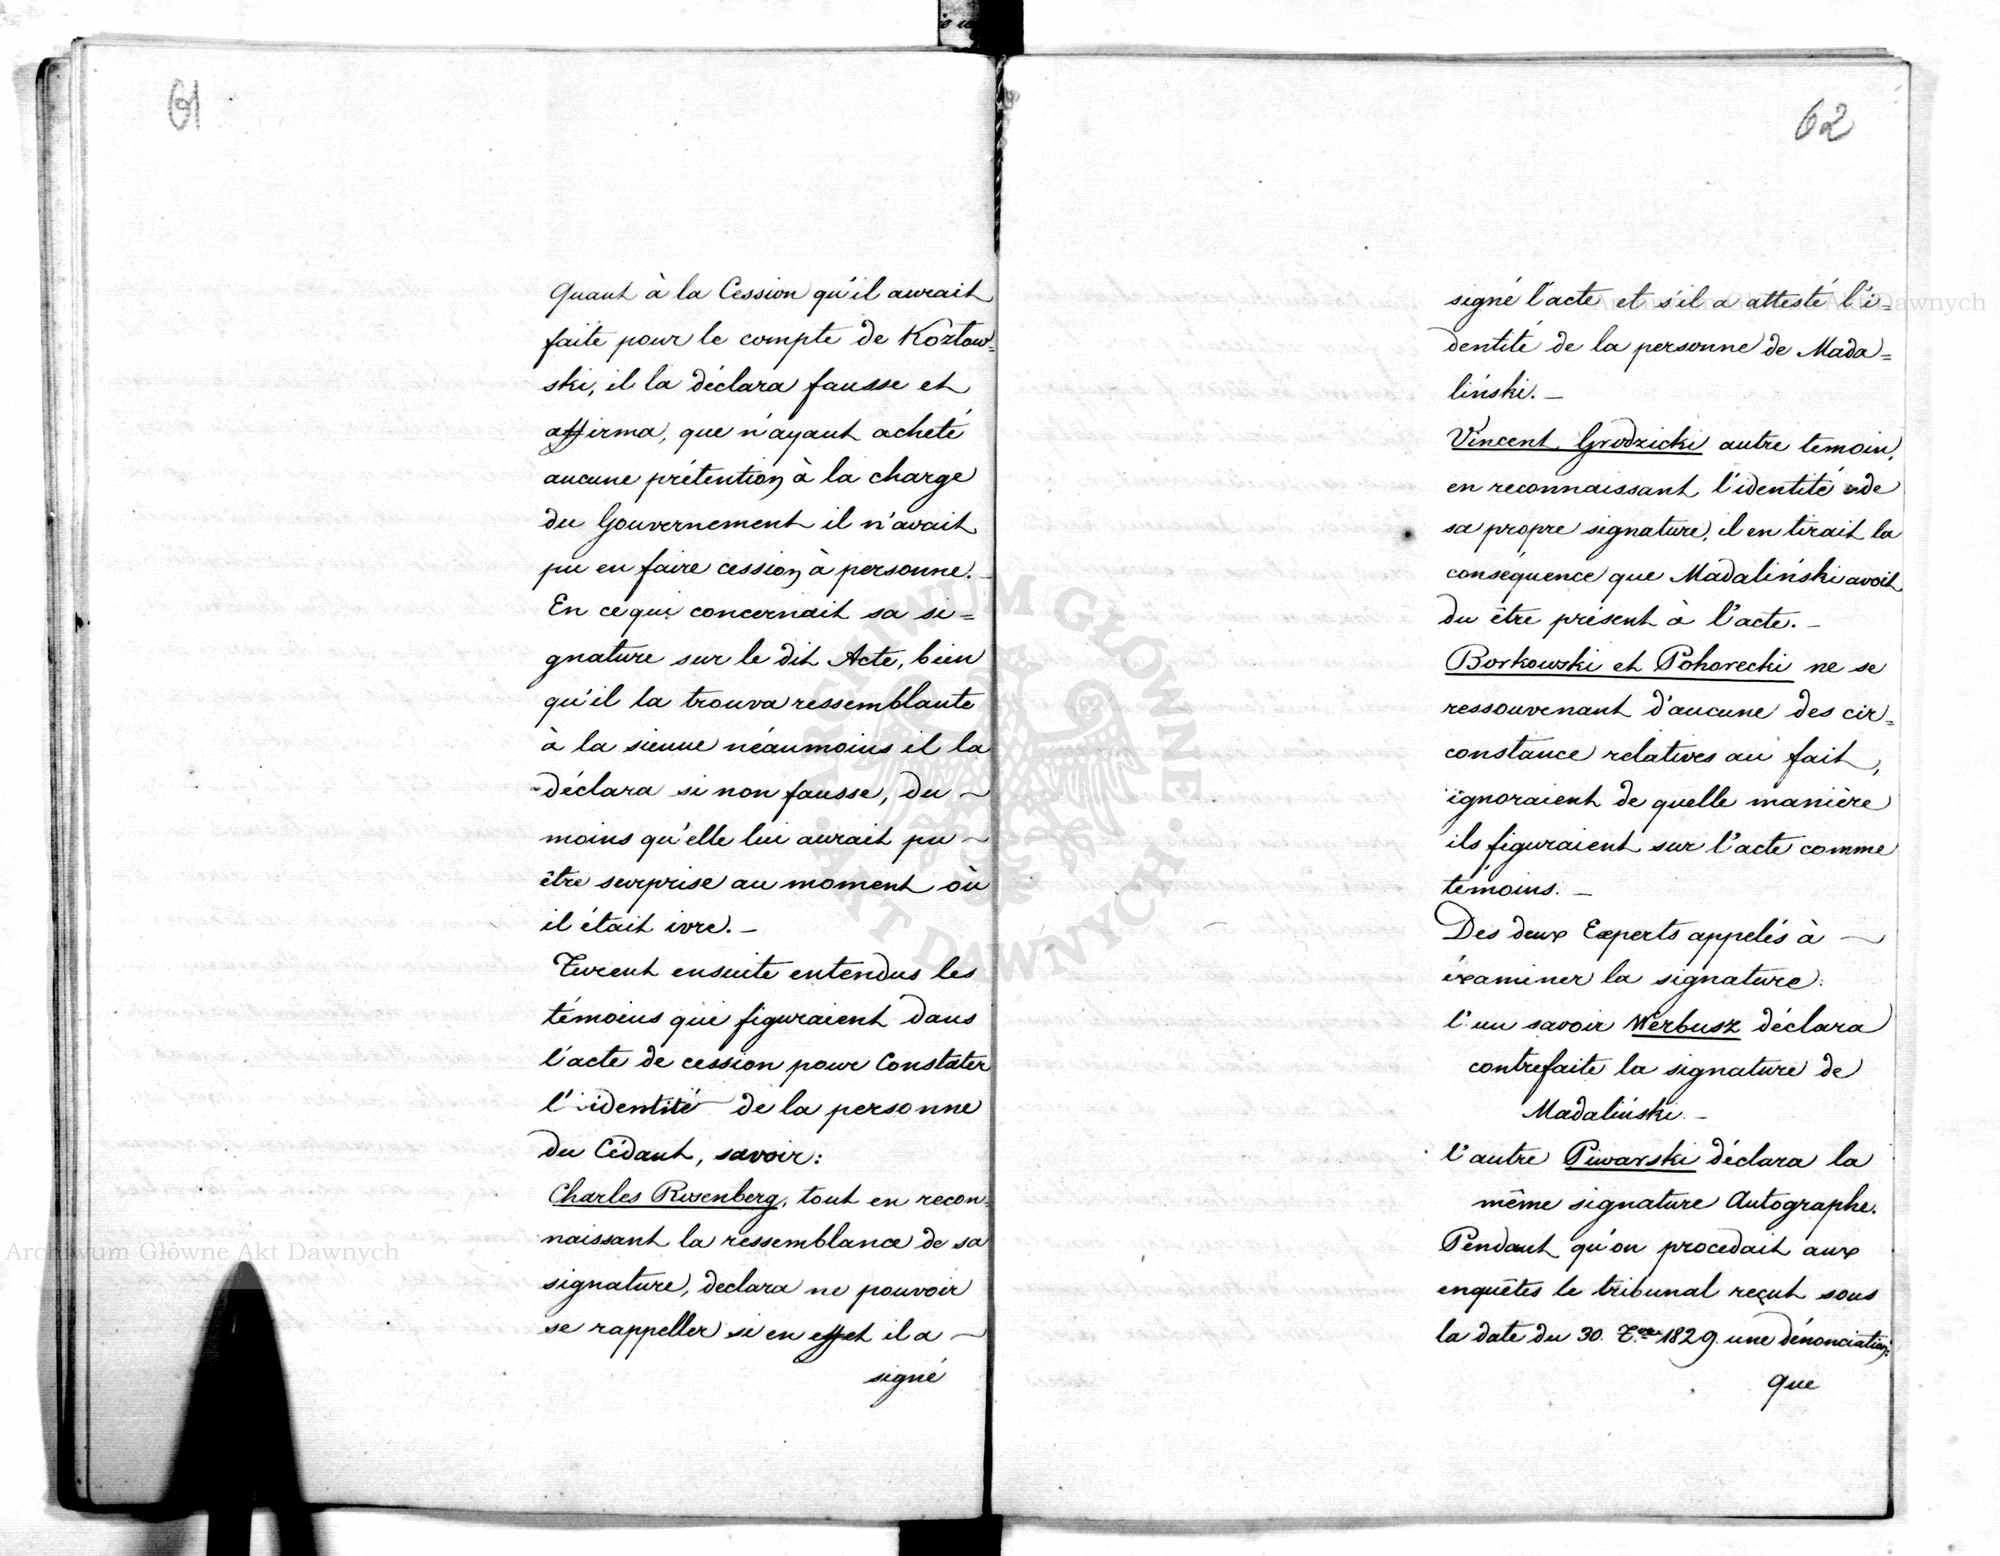 61
Quant à la Cession qu'il aurait
faite pour le compte de Kozłow=
ski, il la déclara fausse et
affirma, que n'ayant acheté
aucune prétention à la charge
du Gouvernement il n'avait
pu en faire cession à personne. –
En ce qui concernait sa si=
gnature sur le dit Acte, bien
qu'il la trouva ressemblante
à la sienne néanmoins il la
déclara si non fausse, du ~
moins qu'elle lui aurait pu ~
être surprise au moment où
il était ivre. –
Furent ensuite entendus les
témoins qui figuraient dans
l'acte de cession pour Constater
l'identité de la personne
du Cédant, savoir:
Charles Rosenberg, tout en recon=
naissant la ressemblance de sa
signature, declara ne pouvoir
se rappeller si en effet il a ~
signé
62
signé l'acte et s'il a attesté l'i=
dentité de la personne de Mada=
liński. –
Vincent Grodzicki autre temoin,
en reconnaissant l'identité de
sa propre signature, il en tirait la
conséquence que Madaliński avoit
du être présent à l'acte. –
Borkowski et Pohorecki ne se
ressouvenant d'aucune des cir=
constance relatives au fait,
ignoraient de quelle manière
ils figuraient sur l'acte comme
témoins. –
Des deux Experts appelés à ~
éxaminer la signature:
l'un savoir Werbusz déclara
contrefaite la signature de
Madaliński. –
l'autre Piwarski déclara la
même signature Autographe.
Pendant qu'on procedait aux
enquêtes le tribunal reçut sous
la date du 30. 1829. une dénonciation:
que
Archiwum Główne Akt Dawnych
Archiwum Główne Akt Dawnych
ARCHIWUM GŁÓWNE
AKT DAWNYCH